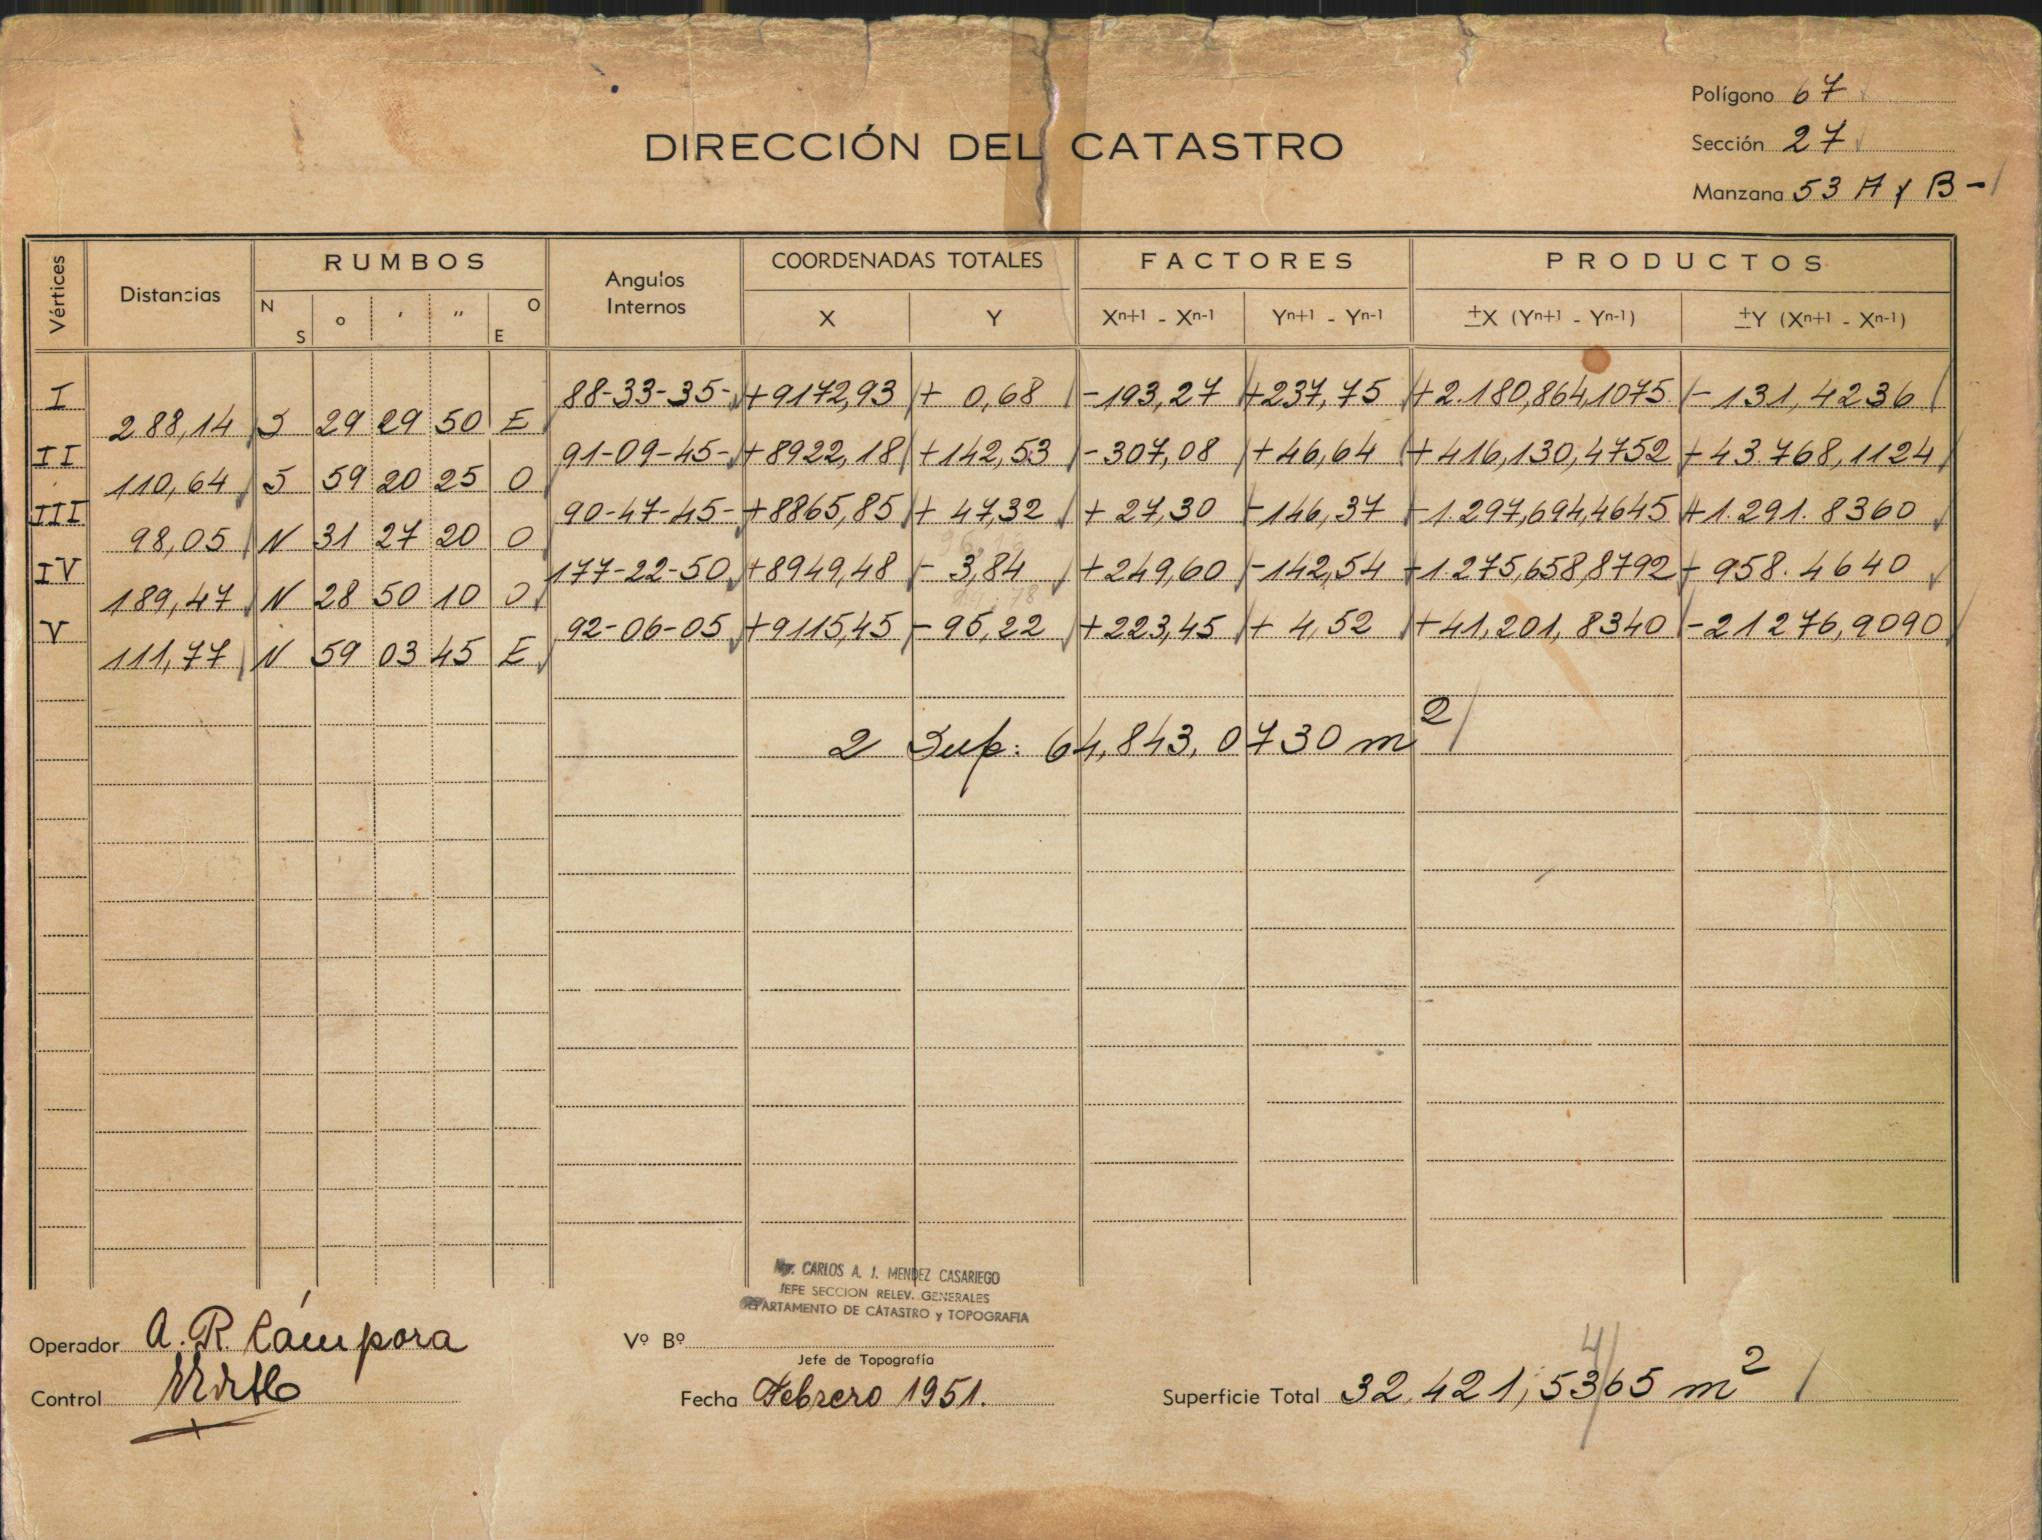 Polígono 67
DIRECCIÓN DEL CATASTRO
Sección 27
Manzana 53 A y B -
Vértices Distancias RUMBOS Angulos Internos COORDENADAS TOTALES FACTORES PRODUCTOS
N S o ' " O E X Y Xn+1 - Xn-1 Yn+1 - Yn-1 ±X (Yn+1 - Yn-1) ±Y (Xn+1 - Xn-1)
I 88-33-35- +9172,93 + 0,68 -193,27 +237,75 +2.180,864,1075 -131,4236
288,14 S 29 29 50 E
II 91-09-45- +8922,18 +142,53 -307,08 +46,64 +416,130,4752 -43.768,1124
110,64 S 59 20 25 O
III 90-47-45- +8865,85 + 47,32 + 27,30 -146,37 -1.297,694,4645 +1.291.8360
98,05 N 31 27 20 O
IV 177-22-50 +8949,48 - 3,84 +249,60 -142,54 -1.275,658,8792 - 958.4640
189,47 N 28 50 10 O
V 92-06-05 +9115,45 - 95,22 +223,45 + 4,52 +41,201,8340 -21276,9090
111,77 N 59 03 45 E
2 Sup: 64,843,0730 m2
CARLOS A. J. MENDEZ CASARIEGO
JEFE SECCION RELEV. GENERALES
DEPARTAMENTO DE CATASTRO y TOPOGRAFIA
Operador A. R. Cámpora
Vº Bº
Jefe de Topografía
Control
Fecha Febrero 1951.
4
Superficie Total 32.421,5365 m2